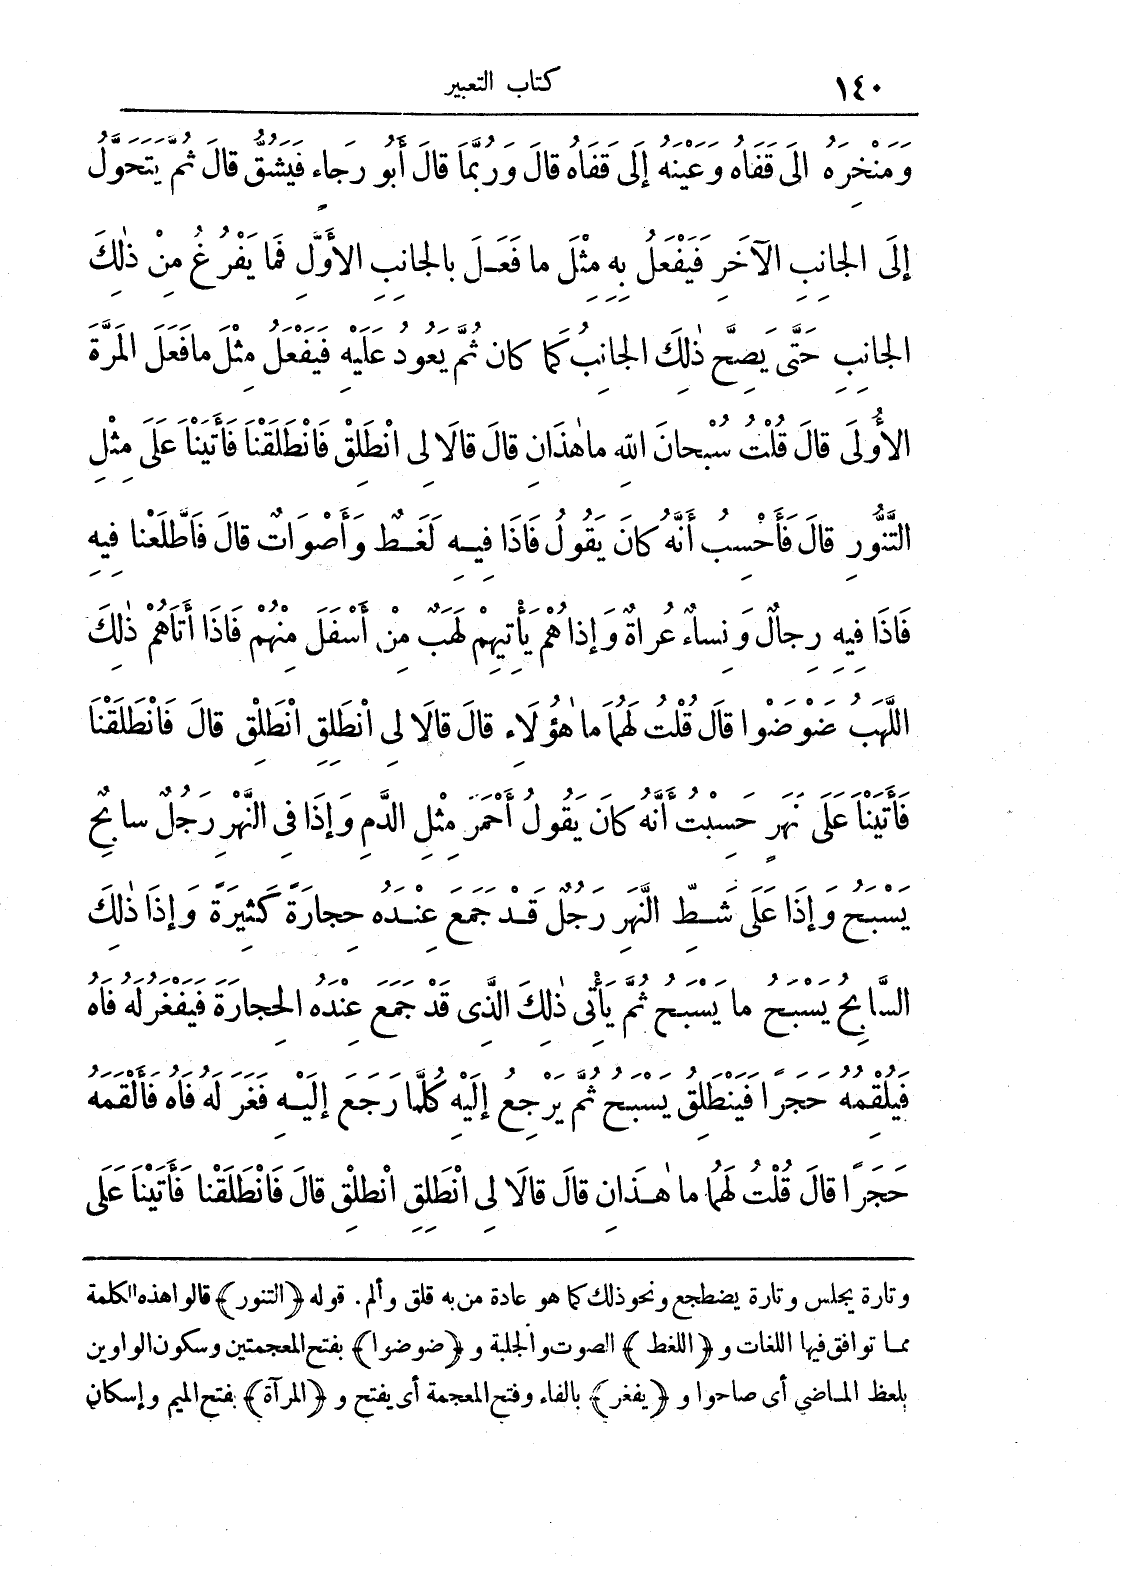 ١٤٠ كتاب التعبير
وَمَنْخِرَهُ إلَى قَفَاهُ وَعَيْنَهُ إِلَى قَفَاهُ قالَ وَرُبَّمَا قالَ أَبُو رَجاءٍ فَيَشُقُّ قالَ ثُمَّ يَتَحَوَّلُ
إِلَى الجانِبِ الآخَرِ فَيَفْعَلُ بِهِ مِثْلَ ما فَعَلَ بالجانِبِ الأَوَّلِ فَمَا يَفْرُغُ مِنْ ذٰلِكَ
الجانِبِ حَتَّى يَصِحَّ ذٰلِكَ الجانِبُ كَمَا كانَ ثُمَّ يَعُودُ عَلَيْهِ فَيَفْعَلُ مِثْلَ مافَعَلَ المَرَّةَ
الأُولَى قالَ قُلْتُ سُبْحانَ اللهِ ماهٰذَانِ قالَ قالَا لِى انْطَلِقْ فَانْطَلَقْنَا فَأَتَيْنَا عَلَى مِثْلِ
التَّنُّورِ قالَ فَأَحْسِبُ أَنَّهُ كانَ يَقُولُ فَاذَا فِيهِ لَغَطٌ وَأَصْوَاتٌ قالَ فَاطَّلَعْنا فِيهِ
فَاذَا فِيهِ رِجالٌ وَنِساءٌ عُراةٌ وَإِذا هُمْ يَأْتِيهِمْ لَهَبٌ مِنْ أَسْفَلَ مِنْهُمْ فَاذَا أَتَاهُمْ ذٰلِكَ
اللَّهَبُ ضَوْضَوْا قالَ قُلْتُ لَهُمَا ما هٰؤُلَاءِ قالَ قالَا لِى انْطَلِقِ انْطَلِقْ قالَ فَانْطَلَقْنَا
فَأَتَيْنَا عَلَى نَهَرٍ حَسِبْتُ أَنَّهُ كانَ يَقُولُ أَحْمَرَ مِثْلِ الدَّمِ وَإِذَا فى النَّهْرِ رَجُلٌ سابِحٌ
يَسْبَحُ وَإِذَا عَلَى شَطِّ النَّهَرِ رَجُلٌ قَدْ جَمَعَ عِنْدَهُ حِجارَةً كَثِيرَةً وَإِذَا ذٰلِكَ
السَّابِحُ يَسْبَحُ ما يَسْبَحُ ثُمَّ يَأْتِى ذٰلِكَ الَّذِى قَدْ جَمَعَ عِنْدَهُ الحِجارَةَ فَيَفْغَرُ لَهُ فَاهُ
فَيُلْقِمُهُ حَجَرًا فَيَنْطَلِقُ يَسْبَحُ ثُمَّ يَرْجِعُ إِلَيْهِ كُلَّمَا رَجَعَ إِلَيْهِ فَغَرَ لَهُ فَاهُ فَأَلْقَمَهُ
حَجَرًا قالَ قُلْتُ لَهُمَا ما هٰذَانِ قالَ قالَا لِى انْطَلِقِ انْطَلِقْ قالَ فَانْطَلَقْنا فَأَتَيْنَا عَلَى
وتارة يجلس وتارة يضطجع ونحو ذلك كما هو عادة من به قلق وألم . قوله ﴿التنور﴾ قالوا هذه الكلمة
مما توافق فيها اللغات و﴿اللغط﴾ الصوت والجلبة و﴿ضوضوا﴾ بفتح المعجمتين وسكون الواوين
بلعظ الماضي أى صاحوا و﴿يفغر﴾ بالفاء وفتح المعجمة أى يفتح و﴿المرآة﴾ بفتح الميم وإسكان